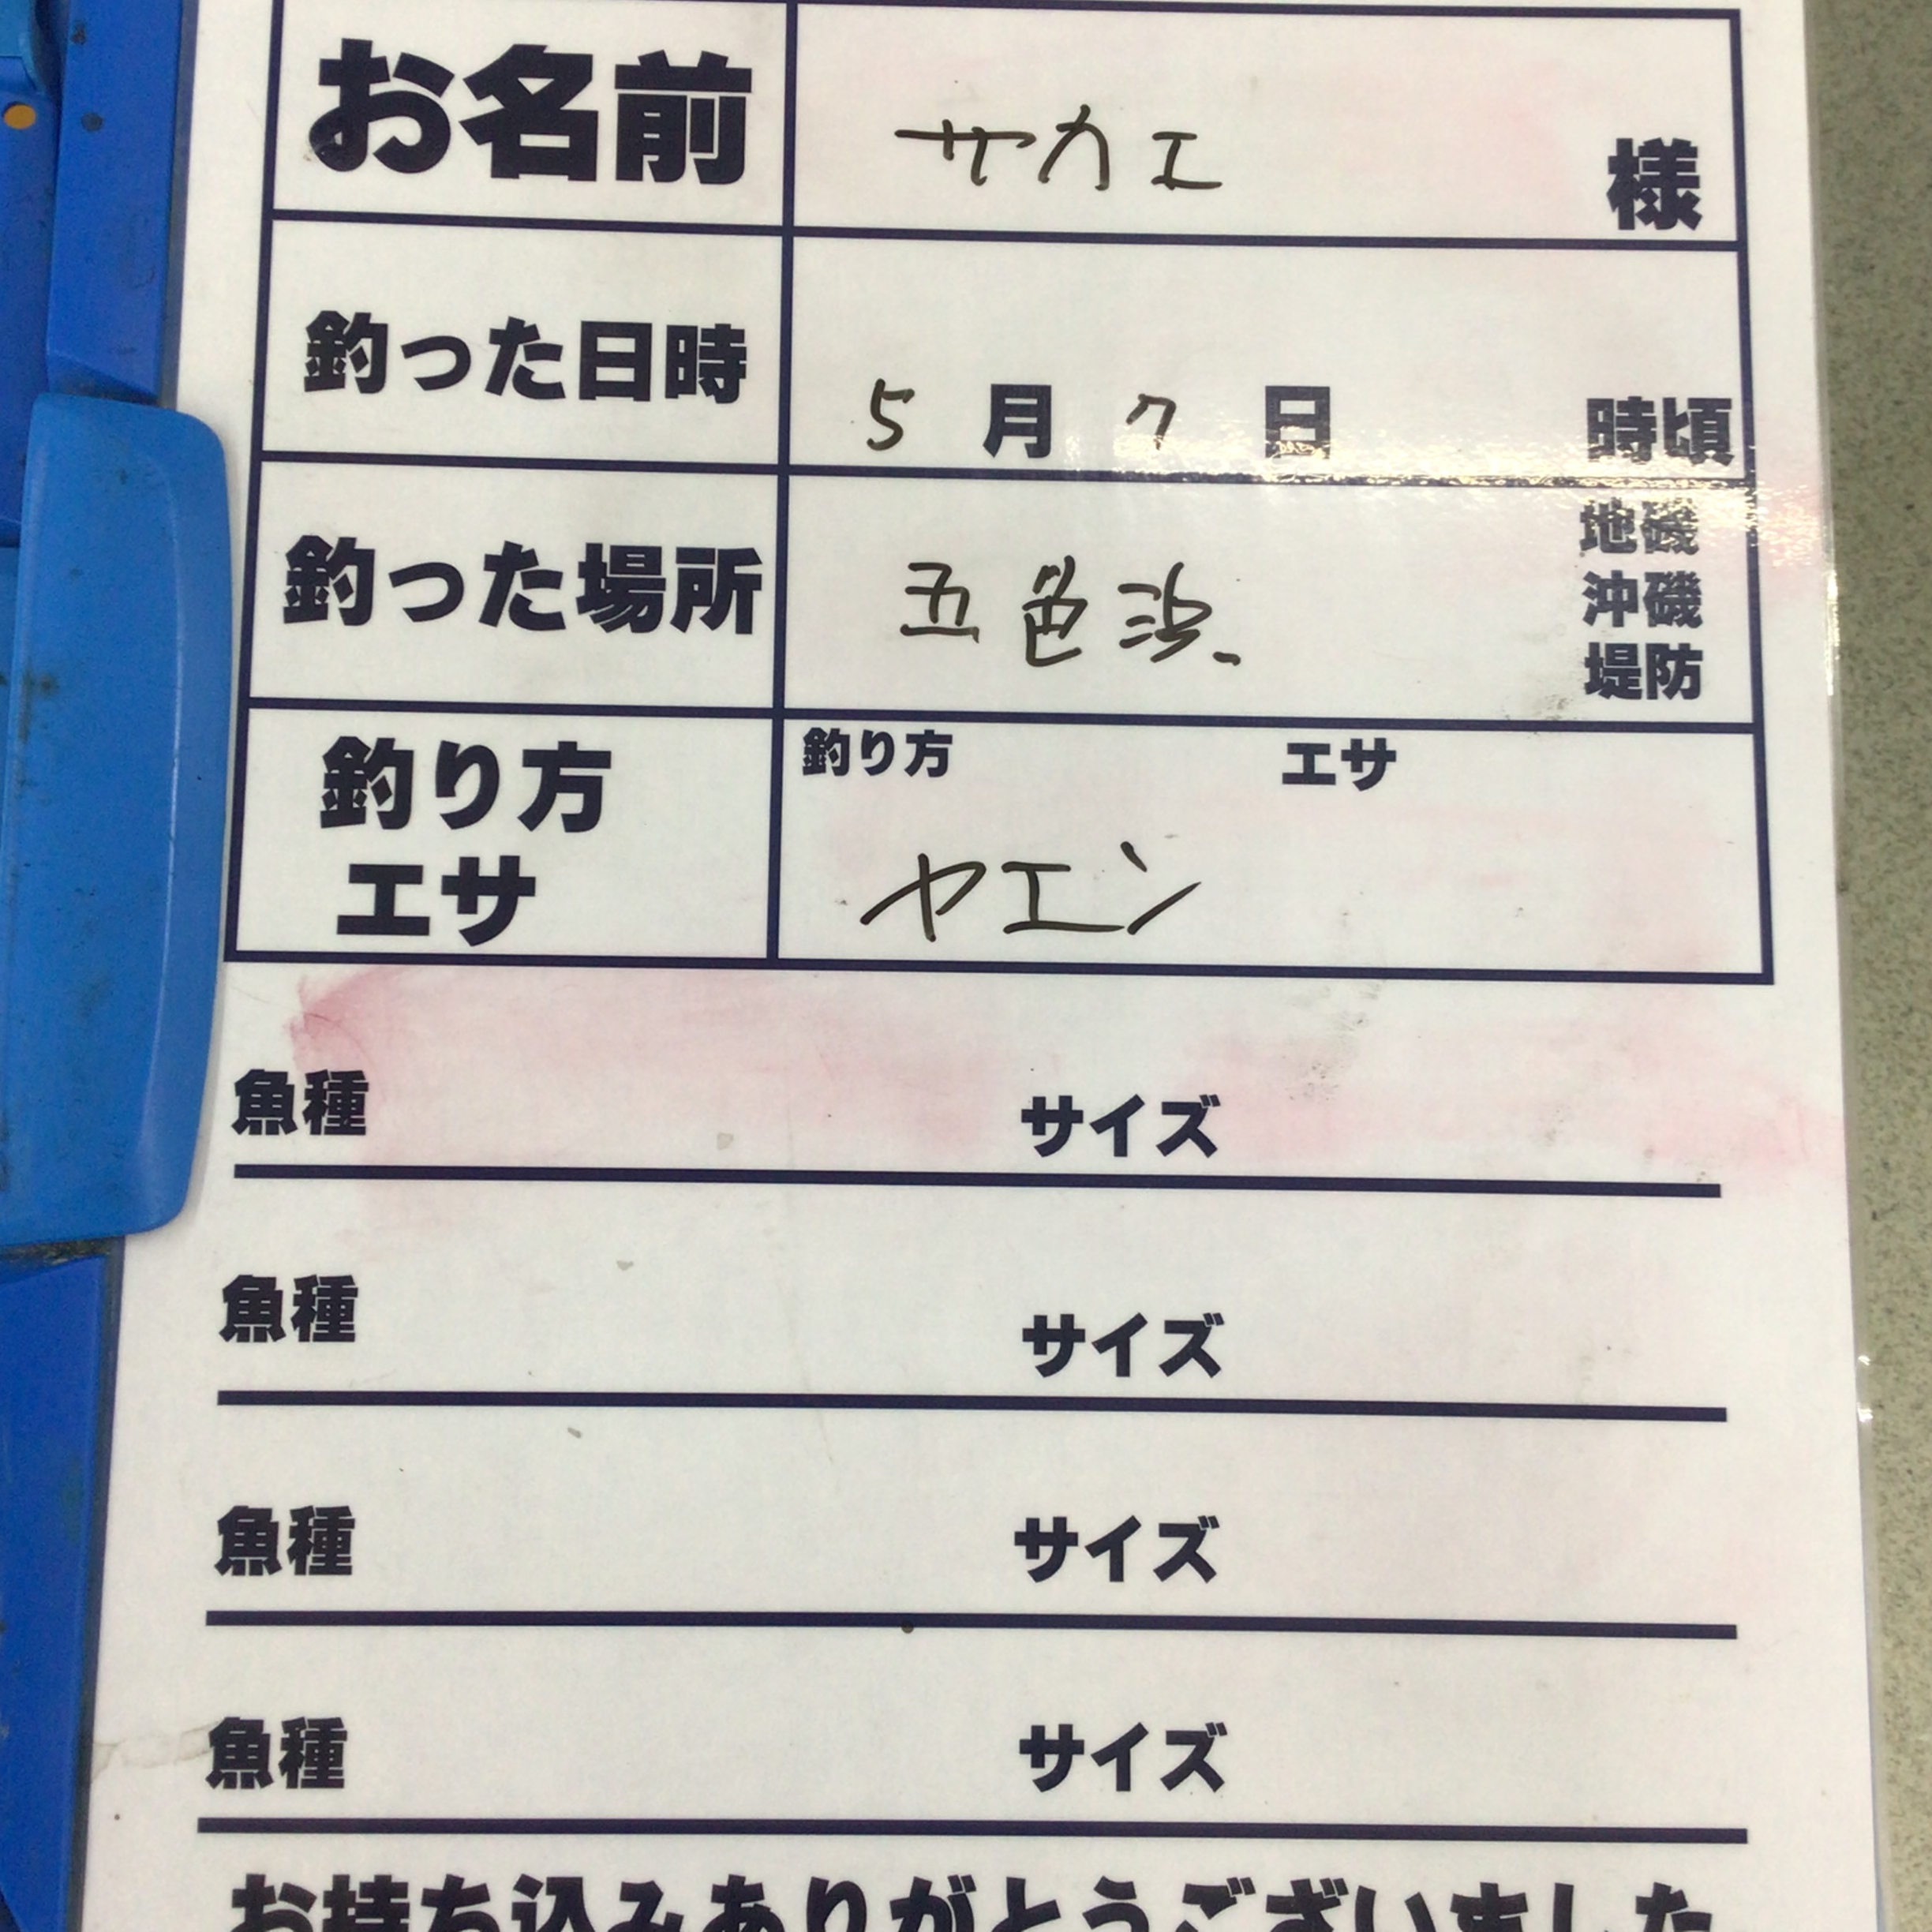 お名前 サカエ 様
釣った日時 5月7日 時頃
釣った場所 五色浜 地磯
沖磯
堤防
釣り方
エサ
釣り方 エサ
ヤエン
魚種 サイズ
魚種 サイズ
魚種 サイズ
魚種 サイズ
お持ち込みありがとうございました